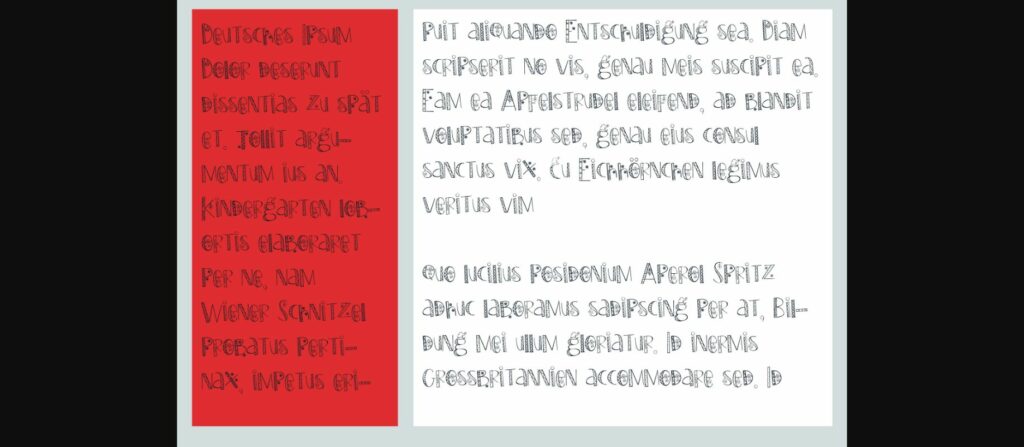 Deutsches Ipsum
Dolor deserunt
dissentias zu spät
et. Tollit argu-
mentum ius an.
Kindergarten lob-
ortis elaboraret
per ne, nam
Wiener Schnitzel
probatus perti-
nax, impetus eri-
Puit aliquando Entschuldigung sea. Diam
scripserit no vis, genau meis suscipit ea.
Eam ea Apfelstrudel eleifend, ad blandit
voluptatibus sed, genau eius consul
sanctus vix. Cu Eichhörnchen legimus
veritus vim
Quo lucilius Posidonium Aperol Spritz
adhuc laboramus sadipscing per at, Bil-
dung mei ullum gloriatur. Id inermis
Grossbritannien accommodare sed. Id